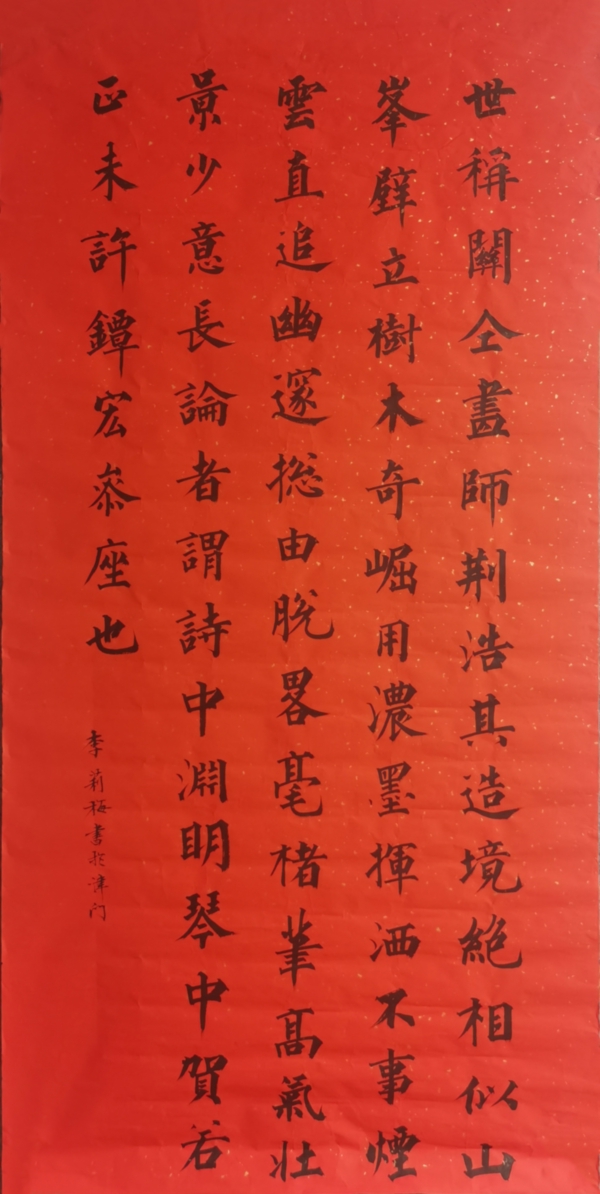 世稱關仝畫師荆浩其造境絕相似山
峯壁立樹木奇崛用濃墨揮洒不事煙
雲直追幽邃捴由脫畧毫楮筆高氣壯
景少意長論者謂詩中淵明琴中賀若
正未許鐔宏叅座也
李莉梅書於津门